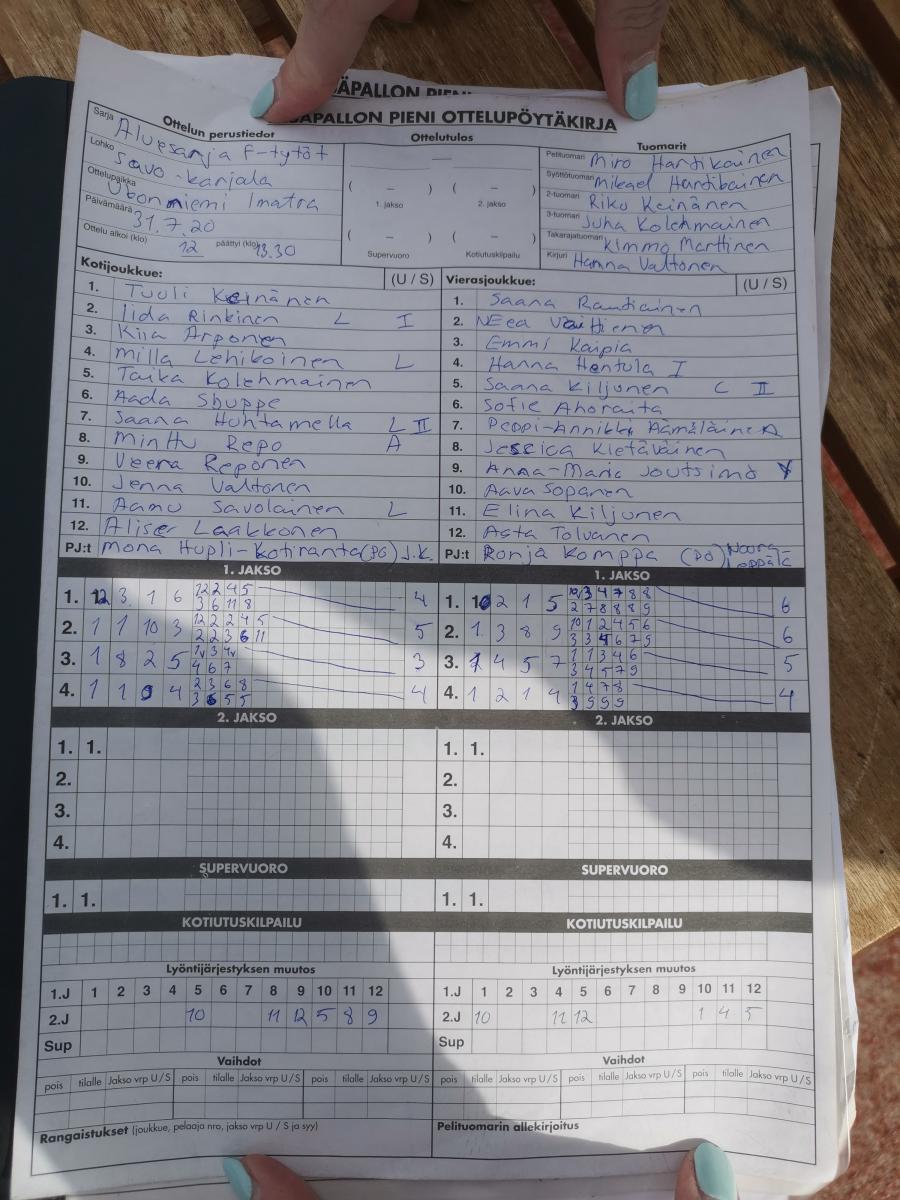 ÄPALLON PIENI
SAPALLON PIENI OTTELUPÖYTÄKIRJA
Ottelun perustiedot
Sarja Aluesarja F-tytöt
Lohko Savo-Karjala
Ottelupaikka Ukonniemi Imatra
Päivämäärä 31.7.20
Ottelu alkoi (klo) 12 päättyi (klo) 13.30
Ottelutulos
( – ) ( – )
1. jakso 2. jakso
( – ) ( – )
Supervuoro Kotiutuskilpailu
Tuomarit
Pelituomari Miro Hartikainen
Syöttötuomari Mikael Hartikainen
2-tuomari Riku Keinänen
3-tuomari Juha Kolehmainen
Takarajatuomari Kimmo Marttinen
Kirjuri Hanna Valtonen
Kotijoukkue: (U / S)
1. Tuuli Keinänen
2. Iida Rinkinen L I
3. Kiia Arponen
4. Milla Lehikoinen L
5. Taika Kolehmainen
6. Aada
7. Saana Huhtamella L II
8. Minttu Repo A
9. Veera Reponen
10. Jenna Valtonen
11. Aamu Savolainen L
12. Laakkonen
PJ:t Mona Hupli-Kotiranta (PG) J.K.
Vierasjoukkue: (U / S)
1. Saana Rautiainen
2. Neea
3. Emmi Kaipia
4. Hanna Hentula I
5. Saana Kiljunen C II
6. Sofie Ahoraita
7. Peppi-Annikki Hämäläinen
8. Jessica Kietäväinen
9. Anna-Marie Joutsimo
10. Aava Sopanen
11. Elina Kiljunen
12. Asta Tolvanen
PJ:t Ronja Komppa (PO) Noora
1. JAKSO
1. 12 3 1 6 12 2 4 5 4
3 6 11 8
2. 1 1 10 3 12 2 2 4 5 5
2 2 3 6 11
3. 1 8 2 5 3
4 6 7
4. 1 1 9 4 2 3 6 8 4
3 6 5 5
1. JAKSO
1. 10 2 1 5 10 3 4 7 8 8 6
2 7 8 8 8 9
2. 1 3 8 9 10 1 2 4 5 6 6
3 3 4 6 7 9
3. 1 4 5 7 1 1 3 4 6 5
3 4 5 7 9
4. 1 2 1 4 1 4 7 8 4
3 9 9 9
2. JAKSO
1. 1.
2.
3.
4.
2. JAKSO
1. 1.
2.
3.
4.
SUPERVUORO
1. 1.
SUPERVUORO
1. 1.
KOTIUTUSKILPAILU
KOTIUTUSKILPAILU
Lyöntijärjestyksen muutos
1.J 1 2 3 4 5 6 7 8 9 10 11 12
2.J 10 11 12 5 8 9
Sup
Lyöntijärjestyksen muutos
1.J 1 2 3 4 5 6 7 8 9 10 11 12
2.J 10 11 12 1 4 5
Sup
Vaihdot
pois tilalle Jakso vrp U/S pois tilalle Jakso vrp U/S pois tilalle Jakso vrp U/S
Vaihdot
pois tilalle Jakso vrp U/S pois tilalle Jakso vrp U/S pois tilalle Jakso vrp U/S
Rangaistukset (joukkue, pelaaja nro, jakso vrp U / S ja syy)
Pelituomarin allekirjoitus